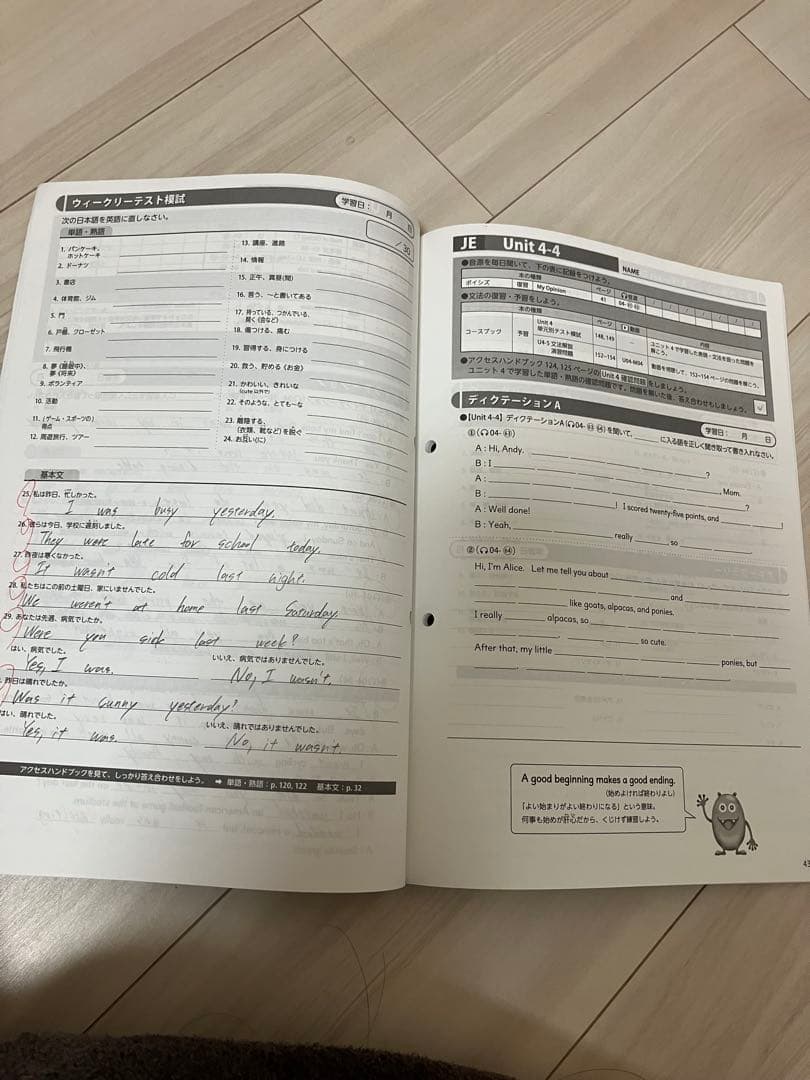 ウィークリーテスト模試
学習日： 月 日
次の日本語を英語に直しなさい。
／30
単語・熟語
1. パンケーキ、
ホットケーキ
2. ドーナツ
3. 書店
4. 体育館、ジム
5. 門
6. 戸棚、クローゼット
7. 飛行機
8. 夢《睡眠中》、
夢《将来》
9. ボランティア
10. 活動
11.（ゲーム・スポーツの）
得点
12. 周遊旅行、ツアー
13. 講座、進路
14. 情報
15. 正午、真昼(間)
16. 言う、～と書いてある
17. 持っている、つかんでいる、
開く(会など)
18. 傷つける、痛む
19. 習得する、身につける
20. 救う、貯める(お金)
21. かわいい、きれいな
(cute 以外で)
22. そのような、とても～な
23. 離陸する、
(衣類、靴など)を脱ぐ
24. お互い(に)
基本文
25. 私は昨日、忙しかった。
I was busy yesterday.
26. 彼らは今日、学校に遅刻しました。
They were late for school today.
27. 昨夜は寒くなかった。
It wasn't cold last night.
28. 私たちはこの前の土曜日、家にいませんでした。
We weren't at home last Saturday.
29. あなたは先週、病気でしたか。
Were you sick last week?
はい、病気でした。
Yes, I was.
いいえ、病気ではありませんでした。
No, I wasn't.
昨日は晴れでしたか。
Was it sunny yesterday?
はい、晴れでした。
Yes, it was.
いいえ、晴れではありませんでした。
No, it wasn't.
アクセスハンドブックを見て、しっかり答え合わせをしよう。 ➡ 単語・熟語：p. 120, 122 基本文：p. 32
JE Unit 4-4
NAME
●音源を毎日聞いて、下の表に記録をつけよう。
本の種類 ページ 音源
ボイシズ 復習 My Opinion 41
●文法の復習・予習をしよう。
本の種類 ページ 動画 内容
コースブック 予習 Unit 4
単元別テスト試験 148, 149 － ユニット4で学習した表現・文法を扱った問題を解こう。
U4-5 文法解説
演習問題 152~154 U04-M04 動画を視聴して、152~154 ページの問題を解こう。
●アクセスハンドブック 124, 125 ページの Unit 4 確認問題 をしましょう。
ユニット4で学習した単語・熟語の確認問題です。問題を解いた後、答え合わせもしましょう。
ディクテーションA
学習日： 月 日
●【Unit 4-4】ディクテーションA(04-63 64)を聞いて、＿＿に入る語を正しく聞き取って書き入れなさい。
①(04-63)
A : Hi, Andy.
B : I ?
A : , Mom.
B : ?
A : Well done! ! I scored twenty-five points, and !
B : Yeah, really so .
②(04-64)
Hi, I'm Alice. Let me tell you about
and
like goats, alpacas, and ponies.
I really alpacas, so
. so cute.
After that, my little ponies, but
.
A good beginning makes a good ending.
(始めよければ終わりよし)
「よい始まりがよい終わりになる」という意味。
何事も始めが肝心だから、くじけず練習しよう。
43